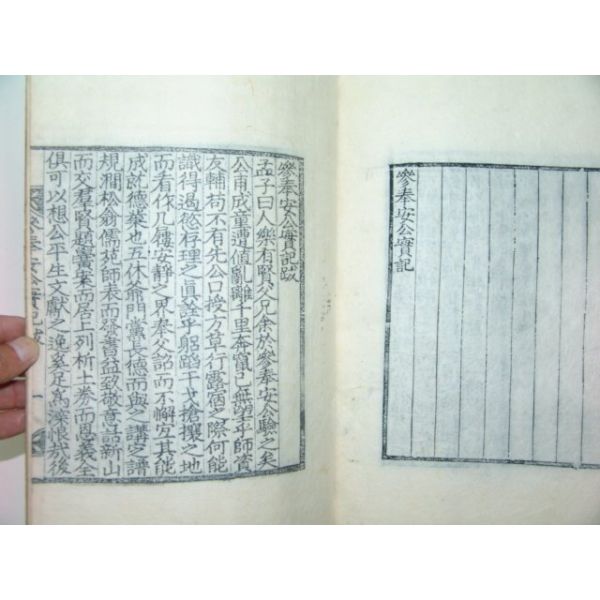 參奉安公實記
參奉安公實記跋
孟子曰人樂有賢父兄余於參奉安公驗之矣
公甫成童遭値亂離千里奔竄已無望乎師資
友輔苟不有先公口授方草行露宿之際何能
識得遏慾存理之眞詮乎躬蹈干戈搶攘之地
而看作几屨安靜之界奉父詔而不懈宜其能
成就德業也五休爺門黨長德而與之講之譜
規澗松翁儒苑師表而發書益致敬意話新山
而交羣賢題黌案而居上列析土券而恩義全
俱可以想公平生文獻之逸矣足爲深恨於後
參奉安公實記 一